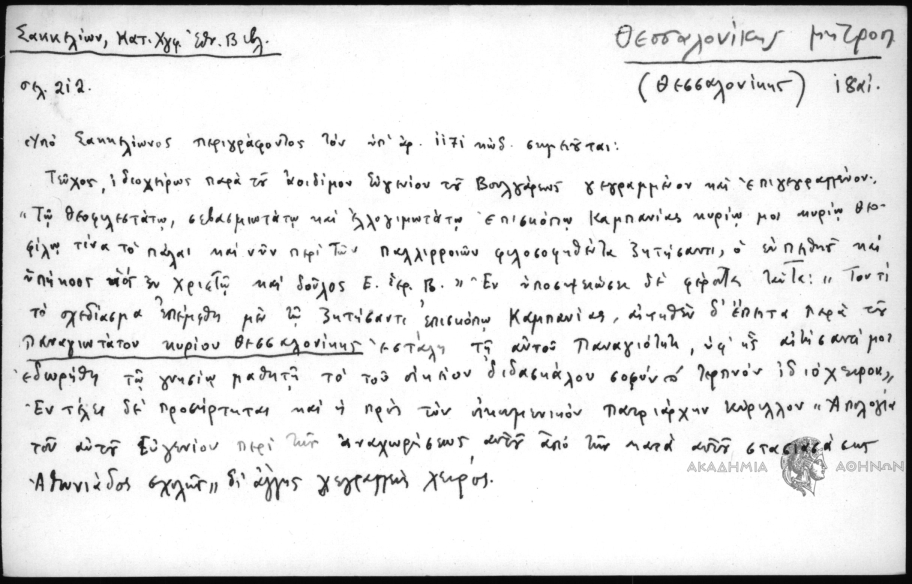 Σακκελίων, Κατ. Χγφ. Ἐθν. Βιβλ.
Θεσσαλονίκης μητροπ
σελ. 212.
(Θεσσαλονίκης) 18αι.
Ὑπὸ Σακκελίωνος περιγράφοντος τὸν ὑπ' ἀρ. 1171 κώδ. σημειοῦται:
Τεῦχος, ἰδιοχείρως παρὰ τοῦ ἀοιδίμου Εὐγενίου τοῦ Βουλγάρεως γεγραμμένον καὶ ἐπιγεγραμμένον.
"Τῷ θεοφιλεστάτῳ, σεβασμιωτάτῳ καὶ ἐλλογιμωτάτῳ ἐπισκόπῳ Καμπανίας κυρίῳ μοι κυρίῳ Θεο-
φίλῳ τινὰ τὸ πάλαι καὶ νῦν περὶ τῶν παλλιρροιῶν φιλοσοφηθέντα ζητήσαντι, ὁ εὐπειθὴς καὶ
ὑπήκοος ἐν Χριστῷ καὶ δοῦλος Ε. ἱερ. Β." Ἐν ὑποσημειώσει δὲ φέρονται ταῦτα: "Τουτὶ
τὸ σχεδίασμα ἐπέμφθη μὲν τῷ ζητήσαντι ἐπισκόπῳ Καμπανίας, αἰτηθὲν δ' ἔπειτα παρὰ τοῦ
Παναγιωτάτου κυρίου Θεσσαλονίκης ἐστάλη τῇ αὐτοῦ Παναγιότητι, ὑφ' ἧς αἰτήσαντί μοι
ἐδωρήθη τῷ γνησίῳ μαθητῇ τὸ τοῦ οἰκείου διδασκάλου σοφόν τε τερπνὸν ἰδιόχειρον"
Ἐν τέλει δὲ προσήρτηται καὶ ἡ πρὸς τὸν οἰκουμενικὸν πατριάρχην Κύριλλον "Ἀπολογία
τοῦ αὐτοῦ Εὐγενίου περὶ τῆς ἀναχωρήσεως αὐτοῦ ἀπὸ τῆς κατὰ αὐτοῦ στασιασάσης
Ἀθωνιάδος σχολῆς" δι' ἄλλης γεγραμμένη χειρός.
ΑΚΑΔΗΜΙΑ ΑΘΗΝΩΝ